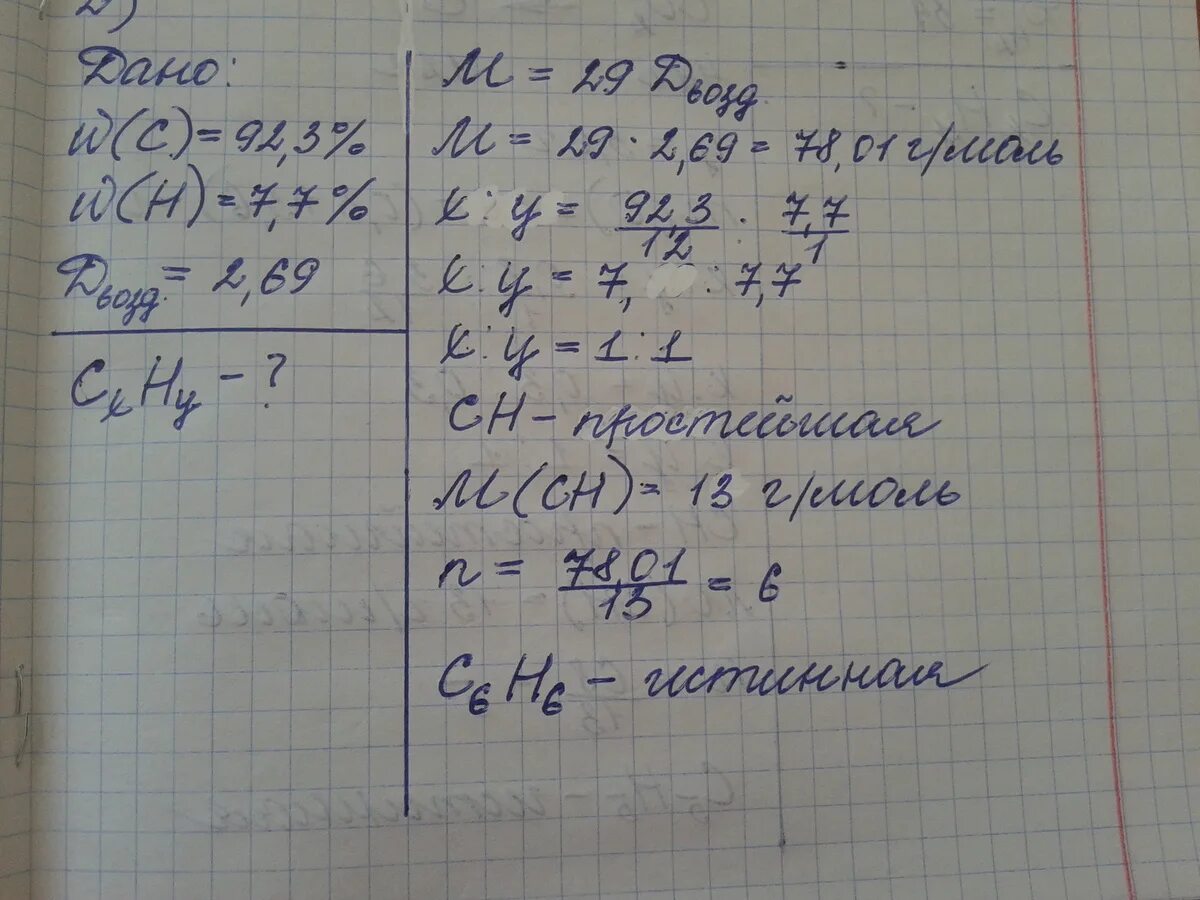 2)
Дано:
W(C) = 92,3%
W(H) = 7,7%
Dвозд. = 2,69
CxHy - ?
M = 29 Dвозд.
M = 29 · 2,69 = 78,01 г/моль
x : y = 92,3/12 : 7,7/1
x : y = 7, : 7,7
x : y = 1 : 1
CH - простейшая
M(CH) = 13 г/моль
n = 78,01/13 = 6
C₆H₆ - истинная